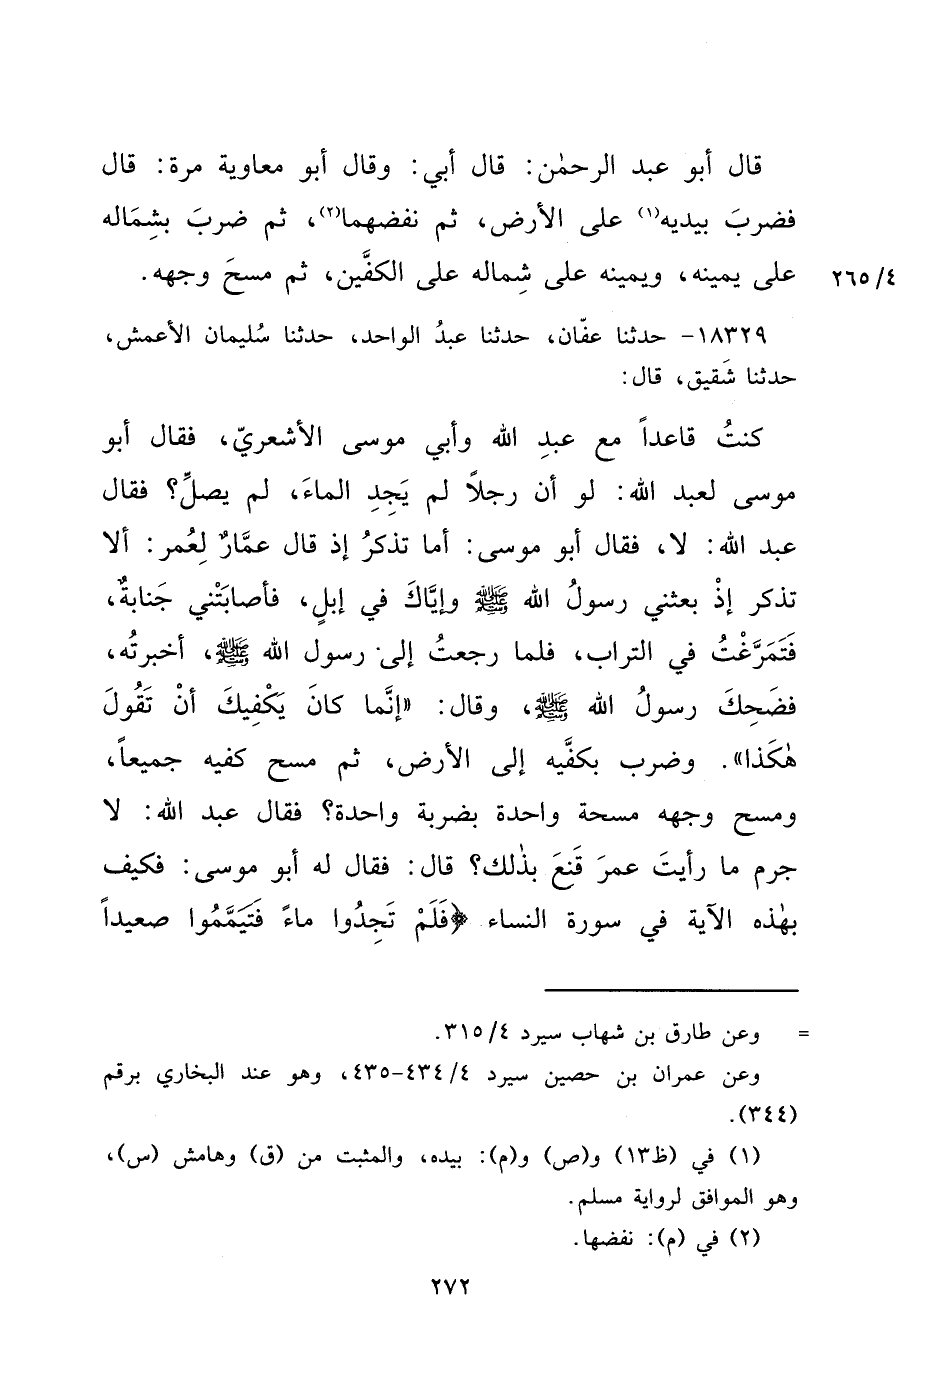 قال أبو عبد الرحمٰن: قال أبي: وقال أبو معاوية مرة: قال
فضربَ بيديه(١) على الأرض، ثم نفضهما(٢)، ثم ضربَ بشِمَاله
على يمينه، ويمينه على شِماله على الكفَّين، ثم مسحَ وجهه.
٢٦٥/٤
١٨٣٢٩- حدثنا عفّان، حدثنا عبدُ الواحد، حدثنا سُليمان الأعمش،
حدثنا شَقيق، قال:
كنتُ قاعداً مع عبدِ الله وأبي موسى الأشعريّ، فقال أبو
موسى لعبد الله: لو أن رجلاً لم يَجِدِ الماءَ، لم يصلِّ؟ فقال
عبد الله: لا، فقال أبو موسى: أما تذكرُ إذ قال عمَّارٌ لِعُمر: ألا
تذكر إذْ بعثني رسولُ الله ﷺ وإيَّاكَ في إبلٍ، فأصابَتْني جَنابةٌ،
فَتَمَرَّغْتُ في التراب، فلما رجعتُ إلى رسول الله ﷺ، أخبرتُه،
فضَحِكَ رسولُ الله ﷺ، وقال: «إنَّما كانَ يَكْفِيكَ أنْ تَقُولَ
هٰكَذا». وضرب بكفَّيه إلى الأرض، ثم مسح كفيه جميعاً،
ومسح وجهه مسحة واحدة بضربة واحدة؟ فقال عبد الله: لا
جرم ما رأيتَ عمرَ قَنِعَ بذٰلك؟ قال: فقال له أبو موسى: فكيف
بهٰذه الآية في سورة النساء ﴿فَلَمْ تَجِدُوا ماءً فَتَيَمَّمُوا صعيداً
= وعن طارق بن شهاب سيرد ٣١٥/٤.
وعن عمران بن حصين سيرد ٤٣٤/٤-٤٣٥، وهو عند البخاري برقم
(٣٤٤).
(١) في (ظ١٣) و(ص) و(م): بيده، والمثبت من (ق) وهامش (س)،
وهو الموافق لرواية مسلم.
(٢) في (م): نفضها.
٢٧٢